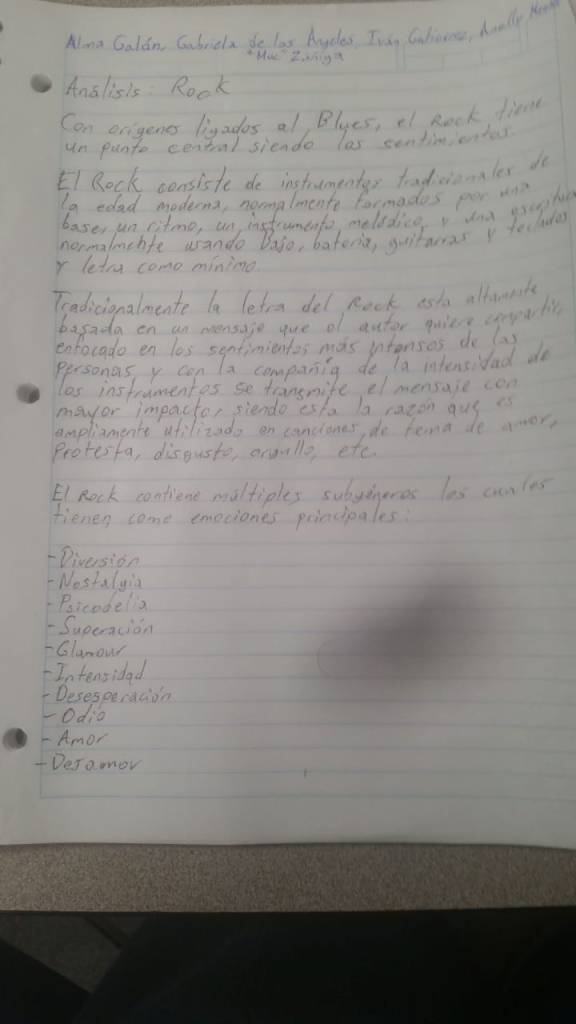 Alma Galán, Gabriela de los Ángeles, Iván Gutierrez, Anally
"Mac" Zuñiga
Análisis: Rock
Con orígenes ligados al Blues, el Rock tiene
un punto central siendo los sentimientos.
El Rock consiste de instrumentos tradicionales de
la edad moderna, normalmente formados por una
base, un ritmo, un instrumento melódico, y una escritura
normalmente usando bajo, bateria, guitarras y teclados
y letra como mínimo.
Tradicionalmente la letra del Rock esta altamente
basada en un mensaje que el autor quiere compartir,
enfocado en los sentimientos más intensos de las
personas y con la compañia de la intensidad de
los instrumentos se transmite el mensaje con
mayor impacto, siendo esta la razón que es
ampliamente utilizado en canciones de tema de amor,
Protesta, disgusto, orgullo, etc.
El Rock contiene múltiples subgéneros los cuales
tienen como emociones principales:
- Diversión
- Nostalgia
- Psicodelia
- Superación
- Glamour
- Intensidad
- Desesperación
- Odio
- Amor
- Desamor